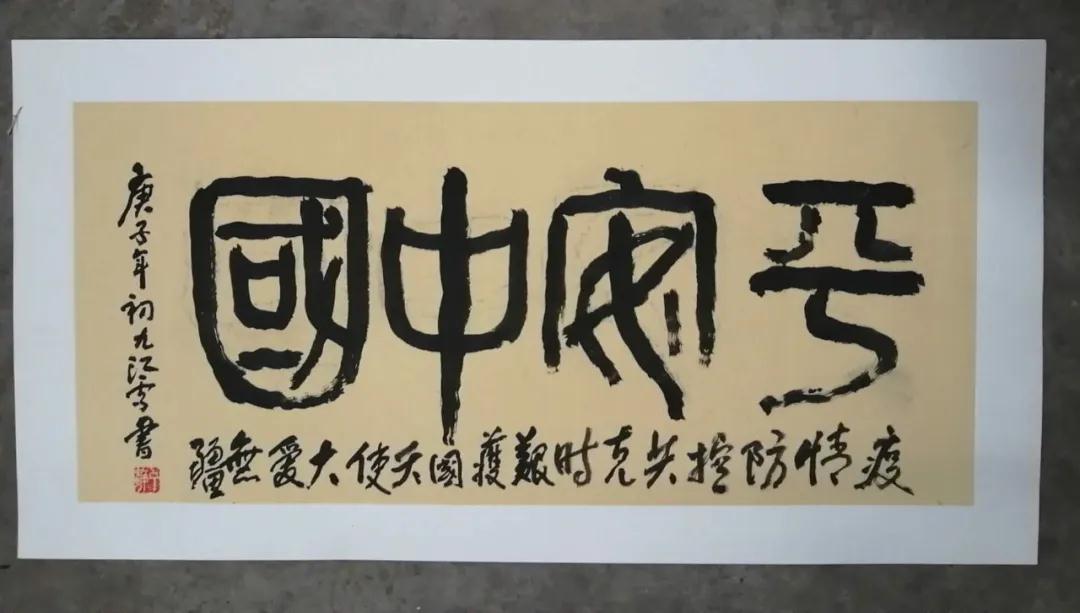 平安中國
疫情防控共克時艱護國天使大愛無疆
庚子年初九江雪書